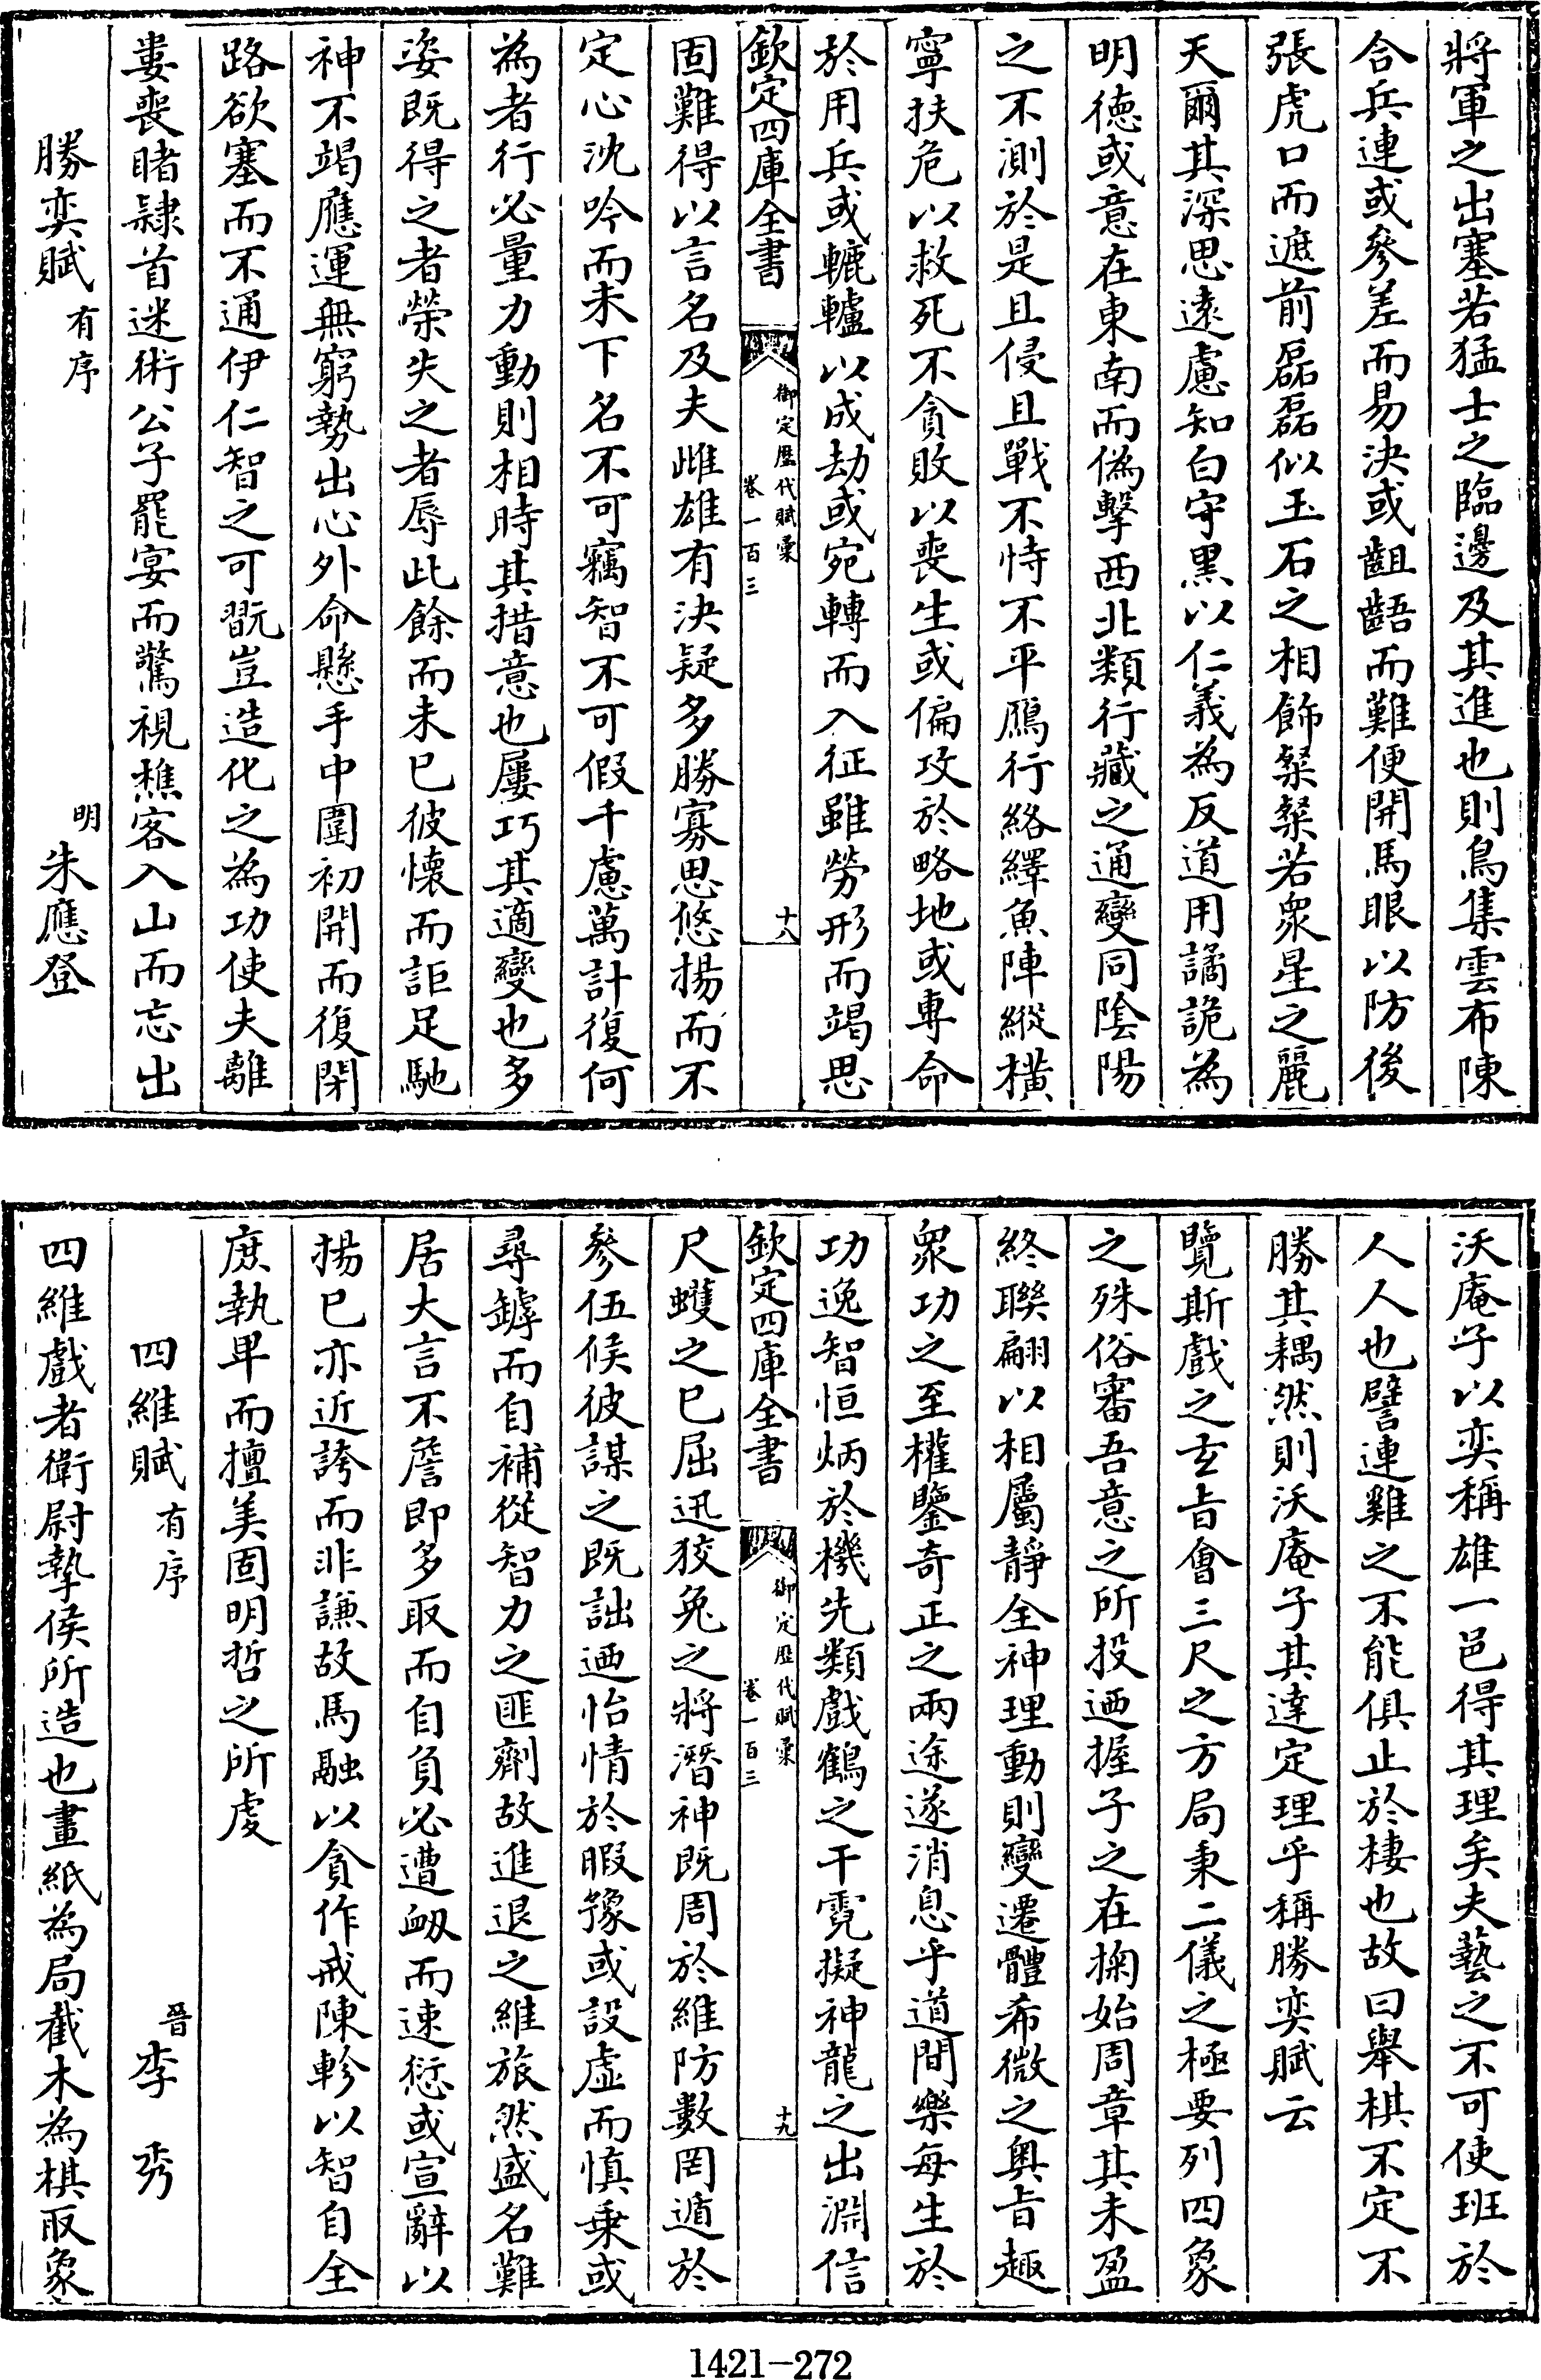 將軍之出塞若猛士之臨邊及其進也則鳥集雲布陳
合兵連或參差而易決或齟齬而難便開馬眼以防後
張虎口而遮前磊磊似玉石之相飾粲粲若衆星之麗
天爾其深思遠慮知白守黑以仁義為反道用譎詭為
明德或意在東南而偽擊西北類行藏之通變同陰陽
之不測於是且侵且戰不恃不平鴈行絡繹魚陣縱橫
寧扶危以救死不貪敗以喪生或偏攻於略地或專命
於用兵或轆轤以成劫或宛轉而入征雖勞形而竭思
欽定四庫全書
御定歷代賦彙
卷一百三
十八
固難得以言名及夫雌雄有決疑多勝寡思悠揚而不
定心沈吟而未下名不可竊智不可假千慮萬計復何
為者行必量力動則相時其措意也屢巧其適變也多
姿既得之者榮失之者辱此餘而未已彼懷而詎足馳
神不竭應運無窮勢出心外命懸手中圍初開而復閉
路欲塞而不通伊仁智之可翫豈造化之為功使夫離
婁喪睹隸首迷術公子罷宴而驚視樵客入山而忘出
勝奕賦 有序
明 朱應登
沃庵子以奕稱雄一邑得其理矣夫藝之不可使班於
人人也譬連雞之不能俱止於棲也故曰舉棋不定不
勝其耦然則沃庵子其達定理乎稱勝奕賦云
覽斯戲之玄旨會三尺之方局秉二儀之極要列四象
之殊俗審吾意之所投迺握子之在掬始周章其未盈
終聯翩以相屬靜全神理動則變遷體希微之奧旨趣
衆功之至權鑒奇正之兩途遂消息乎道間樂每生於
功逸智恒炳於機先類戲鶴之干霓擬神龍之出淵信
欽定四庫全書
御定歷代賦彙
卷一百三
十九
尺蠖之已屈迅狡兔之將潛神既周於維防數罔遁於
參伍候彼謀之既詘迺怡情於暇豫或設虛而慎乗或
尋罅而自補從智力之匪劑故進退之維旅然盛名難
居大言不詹即多取而自負必遭衂而速愆或宣辭以
揚已亦近誇而非謙故馬融以貪作戒陳軫以智自全
庶執卑而擅美固明哲之所處
四維賦 有序
晉 李 秀
四維戲者衛尉摯侯所造也畫紙為局截木為棋取象
1421-272